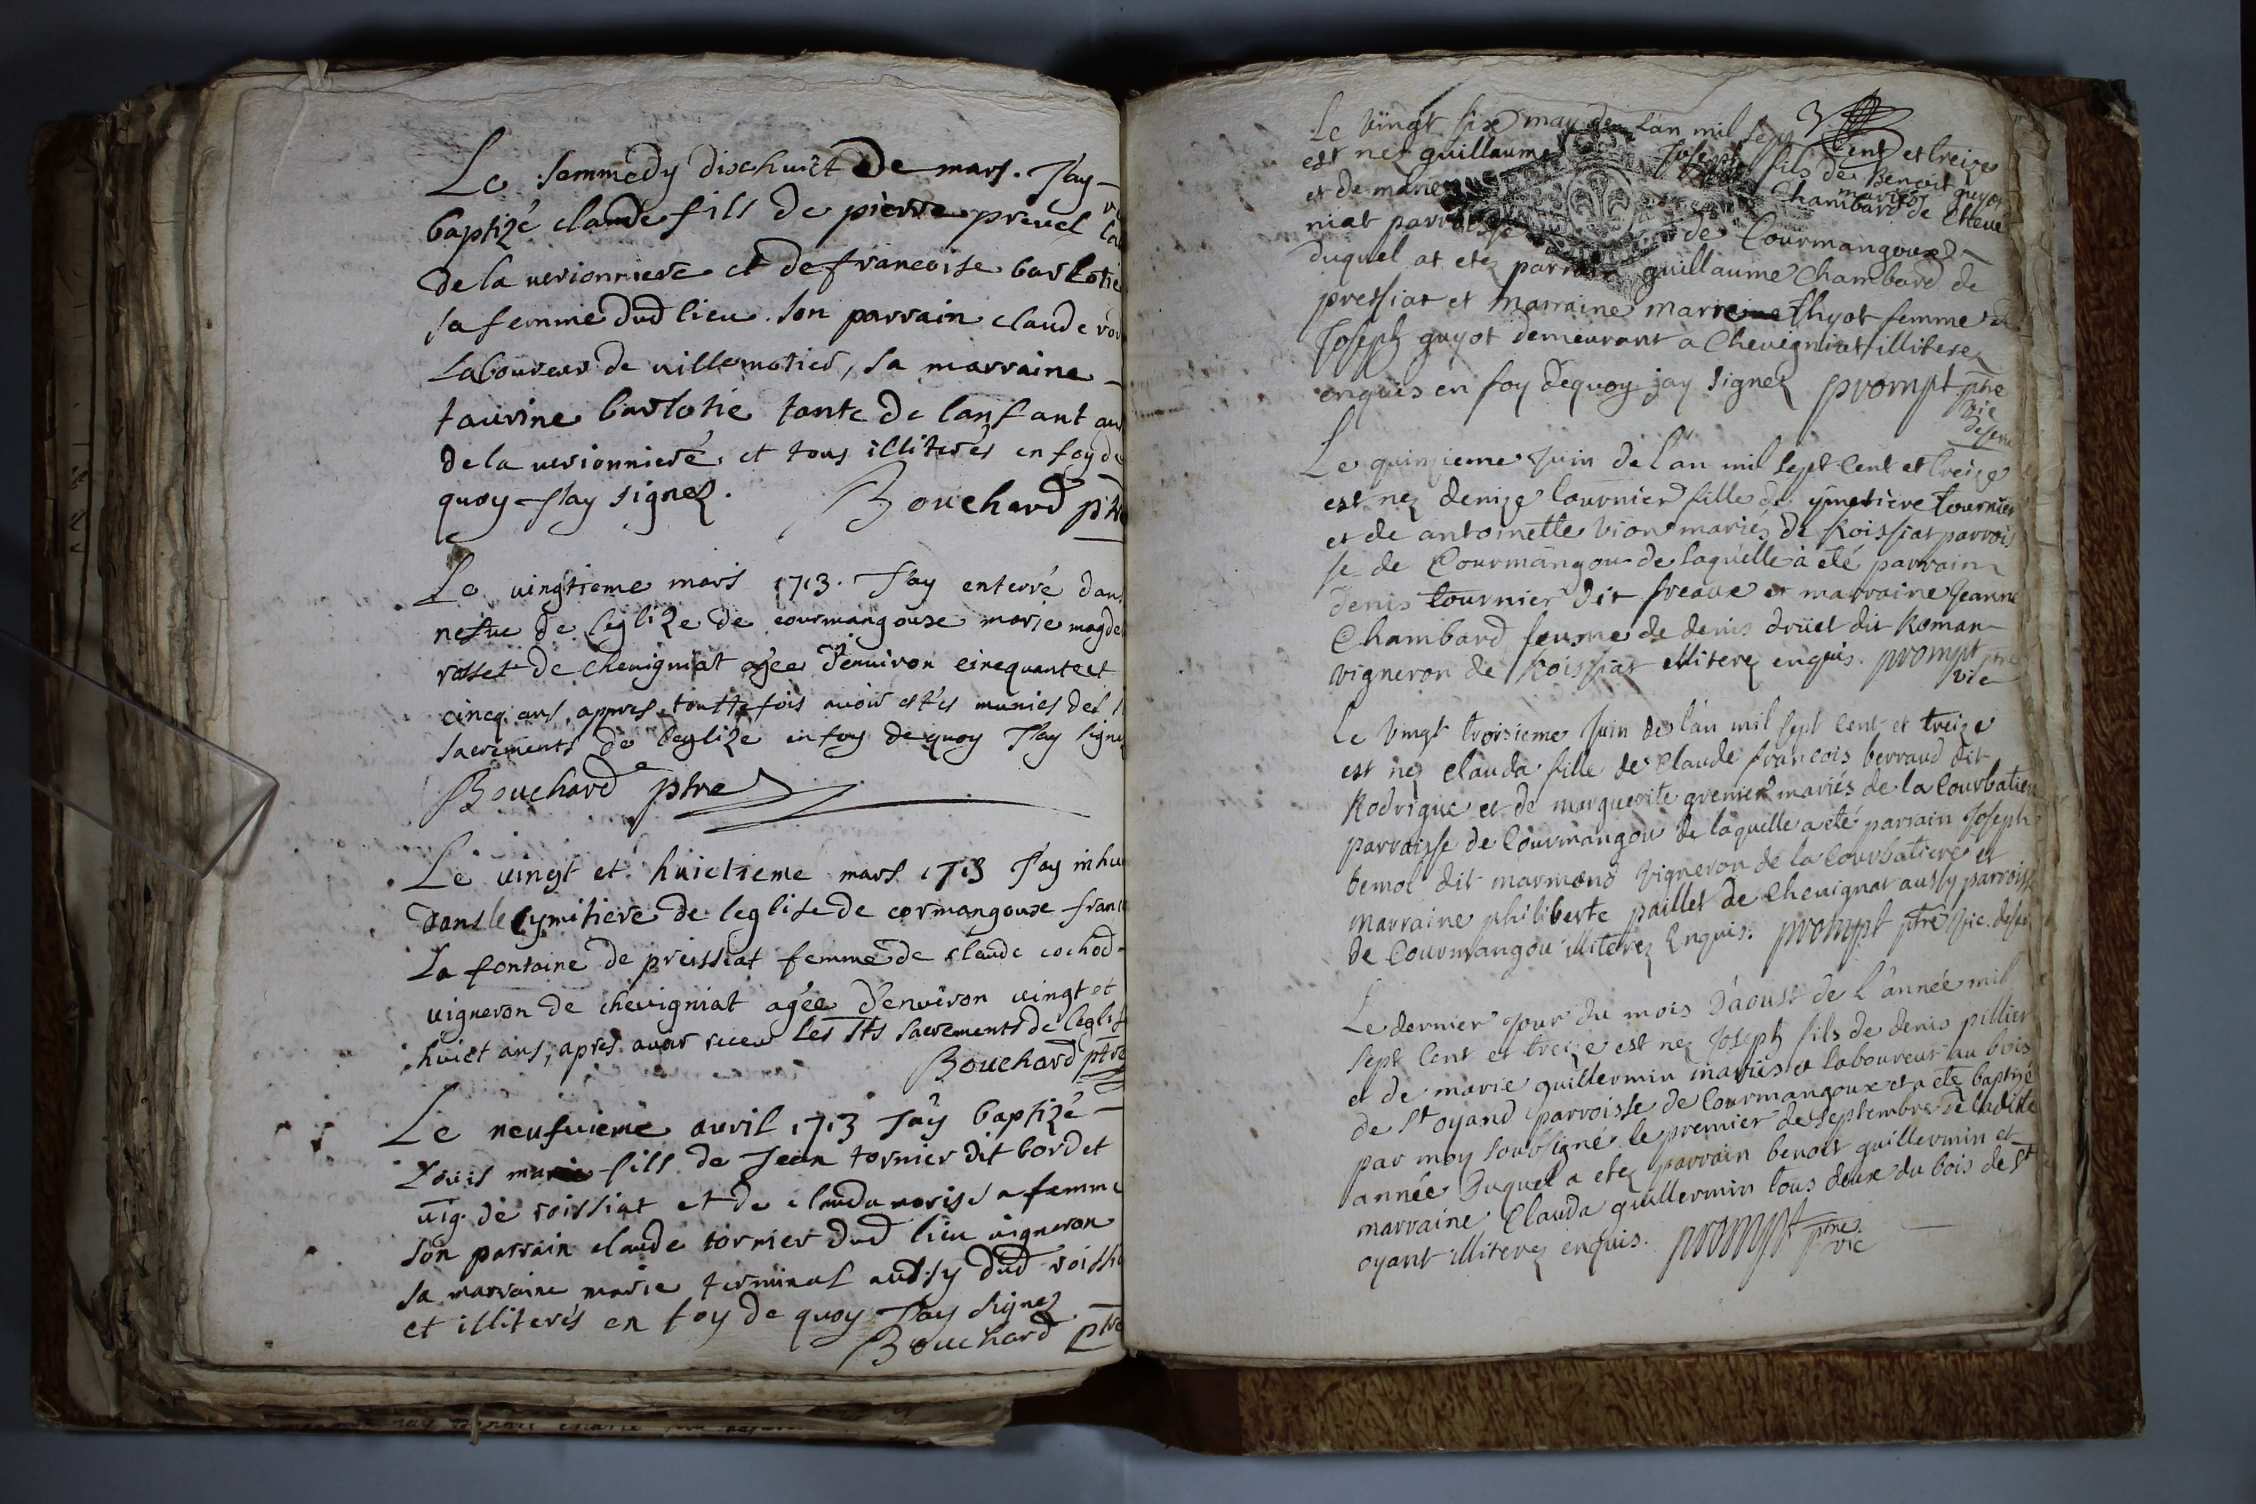 Le sammedy dixhuict de mars. J'ay
baptizé claude fils de pierre prevel
de la verionniere et de francoise barlotie
sa femme dud lieu. son parrain claude
laboureur de villemotier, sa marraine
taurine barlotie tante de lanfant
de la verionniere, et tous illiterés en foy de
quoy J'ay signez. Bouchard ptre
Le vingtieme mars 1713. J'ay enterré dans
nefue de leglize de courmangoux marie magde
rosset de chevigniat agée d'environ cincquante et
cincq ans, appres touttefois avoir estes munies des
sacrements de leglize en foy de quoy J'ay signez
Bouchard ptre
Le vingt et huictieme mars 1713 J'ay inhu
dans le cymitiere de leglise de cormangoux
La fontaine de preissiat femme de claude cochod
vigneron de chevigniat agée d'environ vingt et
huict ans, apres avoir receu les sts sacrements de leglise
Bouchard ptre
Le neufvieme avril 1713 J'ay baptizé
Louis marie fils de Jean tornier dit bordet
vig. de roissiat et de clauda morise sa femme
son parrain claude tornier dud lieu vigneron
sa marraine marie terminal aussy dud
et illiterés en foy de quoy J'ay signez
Bouchard ptre
Le vingt six may de l'an mil sept cent et treize
est nez guillaume Joseph fils de Benoit guyot
et de marie Chambard mariés de Chevi
niat parroisse de Courmangoux
duquel at etez parrain guillaume Chambard de
pressiat et marraine Thyot femme
Joseph guyot demeurant a Chevigniat illiterez
enquis en foy dequoy jay signez prompt ptre
vic
Le quinzieme Juin de l'an mil sept cent et treize
est nez denize tournier fille de ymetiere tournier
et de antoinette vion mariez de Roissiat parrois
se de Courmangou de laquelle à eté parrain
denis tournier dit freaux et marraine Jeanne
Chambard femme de denis drüet dit Roman
vigneron de Roissiat illiterez enquis. prompt ptre
vic
Le vingt troisieme Juin de l'an mil sept cent et treize
est nez clauda fille de Claude francois berraud dit
Rodrigue et de marguerite grenier mariés de la Courbatiere
parroisse de Courmangou de laquelle a eté parrain Joseph
bemol dit marmond vigneron de la Courbatiere et
marraine philiberte paillet de Chevignat aussy parroisse
de Courmangou illiterez Enquis. prompt ptre vic.
Le dernier Jour du mois D'aoust de l'année mil
sept Cent et treize est nez Joseph fils de denis pillier
et de marie guillermin mariés et laboureur au bois
de St oyand parroisse de Courmangoux et a etez baptizé
par moy soubsigné le premier de septembre de laditte
année Duquel a etez parrain benoit guillermin et
marraine Clauda guillermin tous deux du bois de St
oyant illiterez enquis. prompt ptre
vic